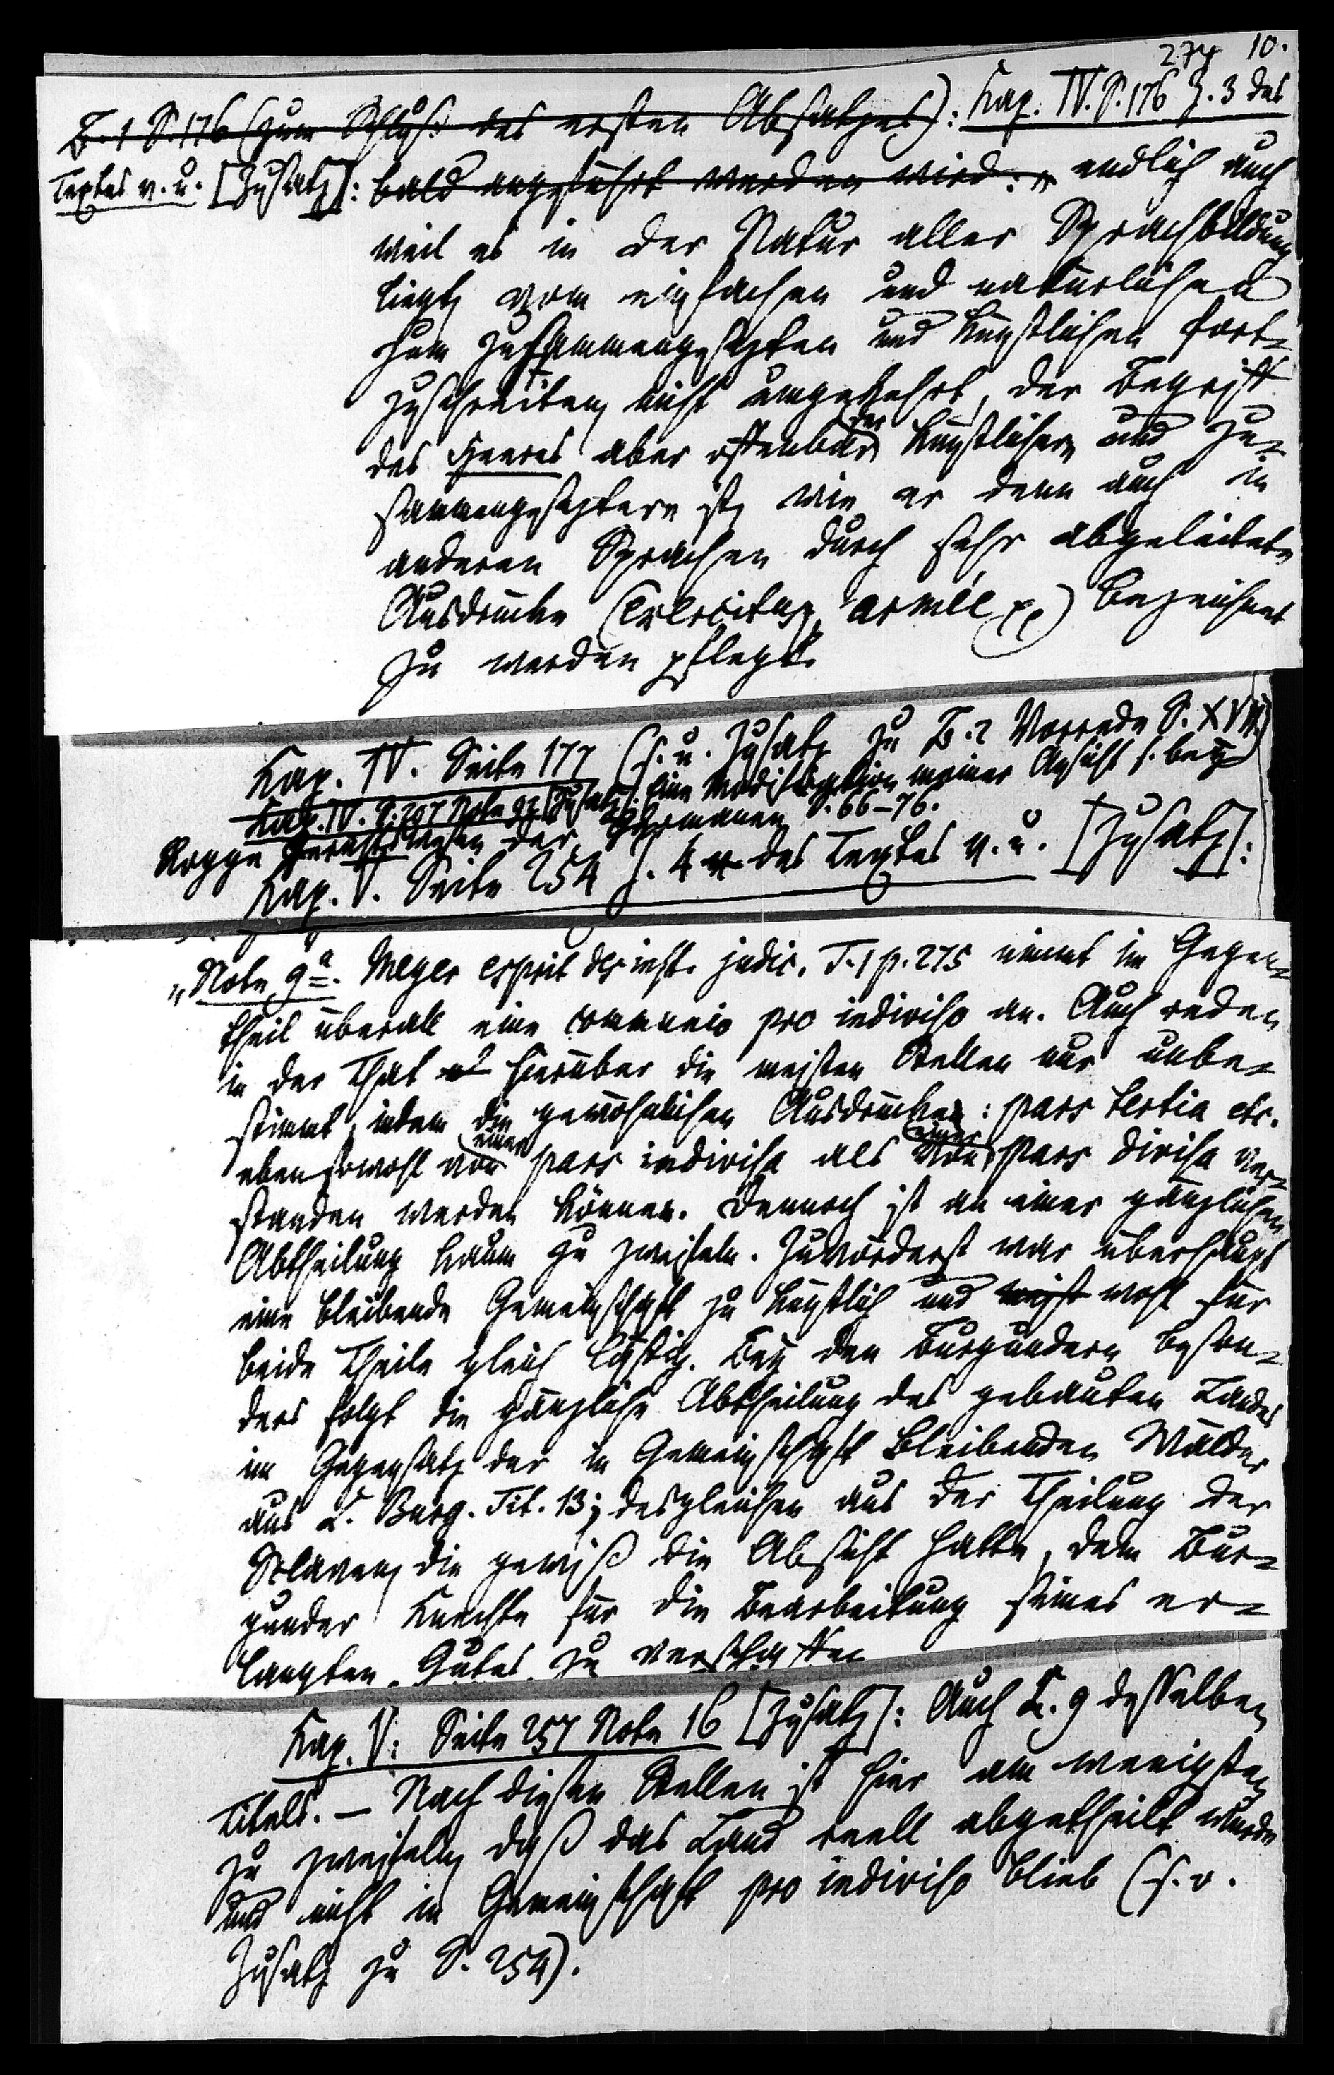 274 10.
B. 1 S. 176 (zum Schluß des ersten Absatzes): Kap. IV. S. 176 Z. 3 des
Textes v. u. [Zusatz]: bald angeführt werden wird: " endlich auch
weil es in der Natur aller Sprachbildung
liegt, vom einfachen und natürlichen
zum zusammengesetzten und künstlichen fort-
zuschreiten, nicht umgekehrt, der Begriff
des Heeres aber offenbar der künstlichere und zu-
sammengesetztere ist, wie er denn auch in
anderen Sprachen durch sehr abgeleitete
Ausdrücke (exercitus, armée pp) bezeichnet
zu werden pflegt.
Kap. IV. Seite 177 (s. u. Zusatz zu B. 2 Vorrede S. XVII)
Kap. IV. S. 207 Note 97 [Zusatz]: Eine Modification meiner Ansicht s. bey
Rogge Gerichtswesen der Germanen S. 66–76.
Kap. V. Seite 254 Z. 4 des Textes v. u. [Zusatz]:
"Note 9a. Meyer esprit des inst. judic. T. 1 p. 275 nimmt im Gegen-
theil überall eine communio pro indiviso an. Auch reden
in der That hierüber die meisten Stellen nur unbe-
stimmt, indem die gewöhnlichen Ausdrücke: pars tertia etc.
eben sowohl von einer pars indivisa als von einer pars divisa ver-
standen werden können. Dennoch ist an einer gänzlichen
Abtheilung kaum zu zweifeln. Zuvörderst war überhaupt
eine bleibende Gemeinschaft zu künstlich und nicht wohl für
beide Theile gleich lästig. Bey den Burgundern beson-
ders folgt die gänzliche Abtheilung des gebauten Landes
im Gegensatz der in Gemeinschaft bleibenden Wälder
aus L. Burg. Tit. 13; desgleichen aus der Theilung der
Sclaven, die gewiß die Absicht hatte, dem Bur-
gunder Knechte für die Bearbeitung seines er-
langten Gutes zu verschaffen
Kap. V: Seite 257 Note 16 [Zusatz]: Auch L. 9 desselben
Titels. — Nach diesen Stellen ist hier am wenigsten
zu zweifeln, daß das Land reell abgetheilt wurde
und nicht in Gemeinschaft pro indiviso blieb (s. o.
Zusatz zu S. 254).